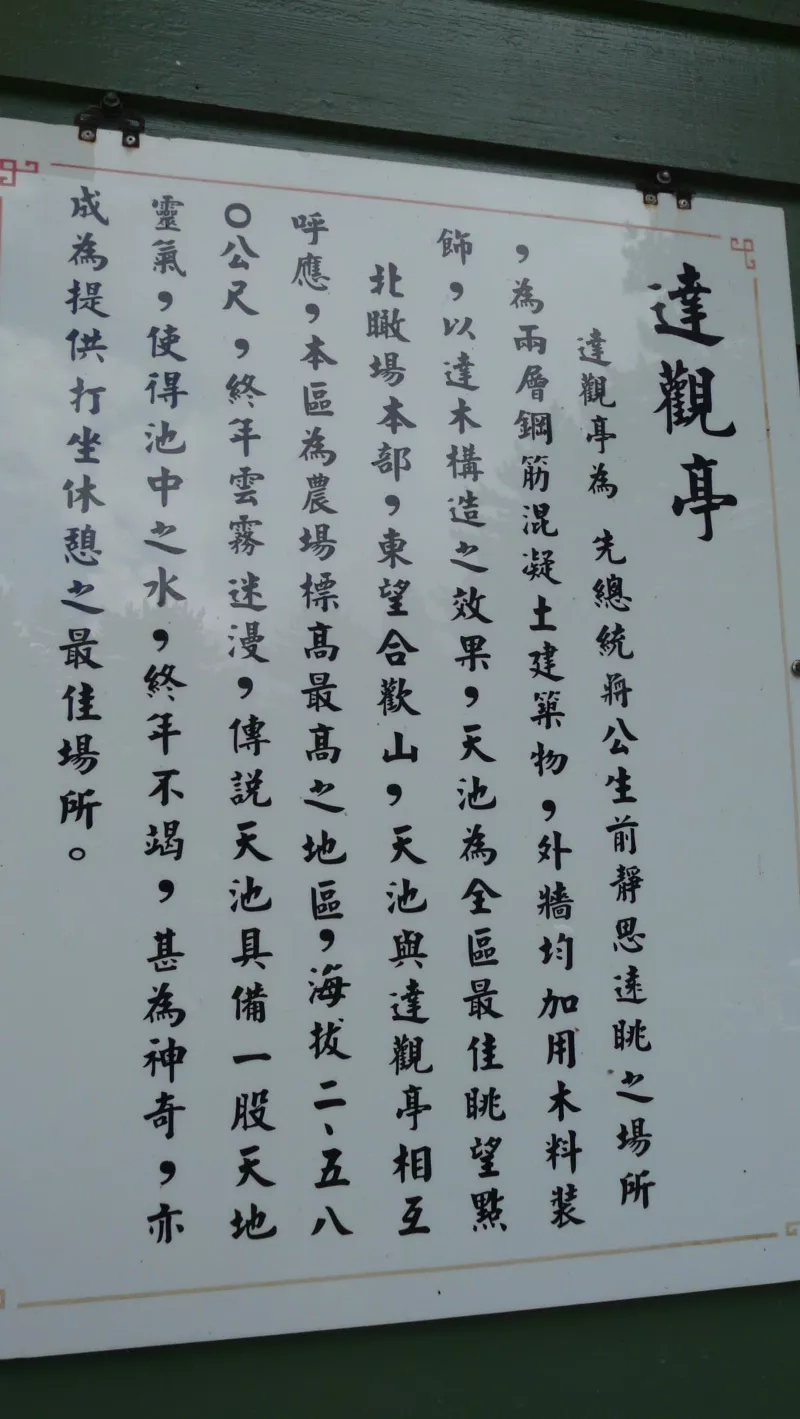 達觀亭
達觀亭為 先總統蔣公生前靜思遠眺之場所
，為兩層鋼筋混凝土建築物，外牆均加用木料裝
飾，以達木構造之效果，天池為全區最佳眺望點
北瞰場本部，東望合歡山，天池與達觀亭相互
呼應，本區為農場標高最高之地區，海拔二、五八
〇公尺，終年雲霧迷漫，傳說天池具備一股天地
靈氣，使得池中之水，終年不竭，甚為神奇，亦
成為提供打坐休憩之最佳場所。